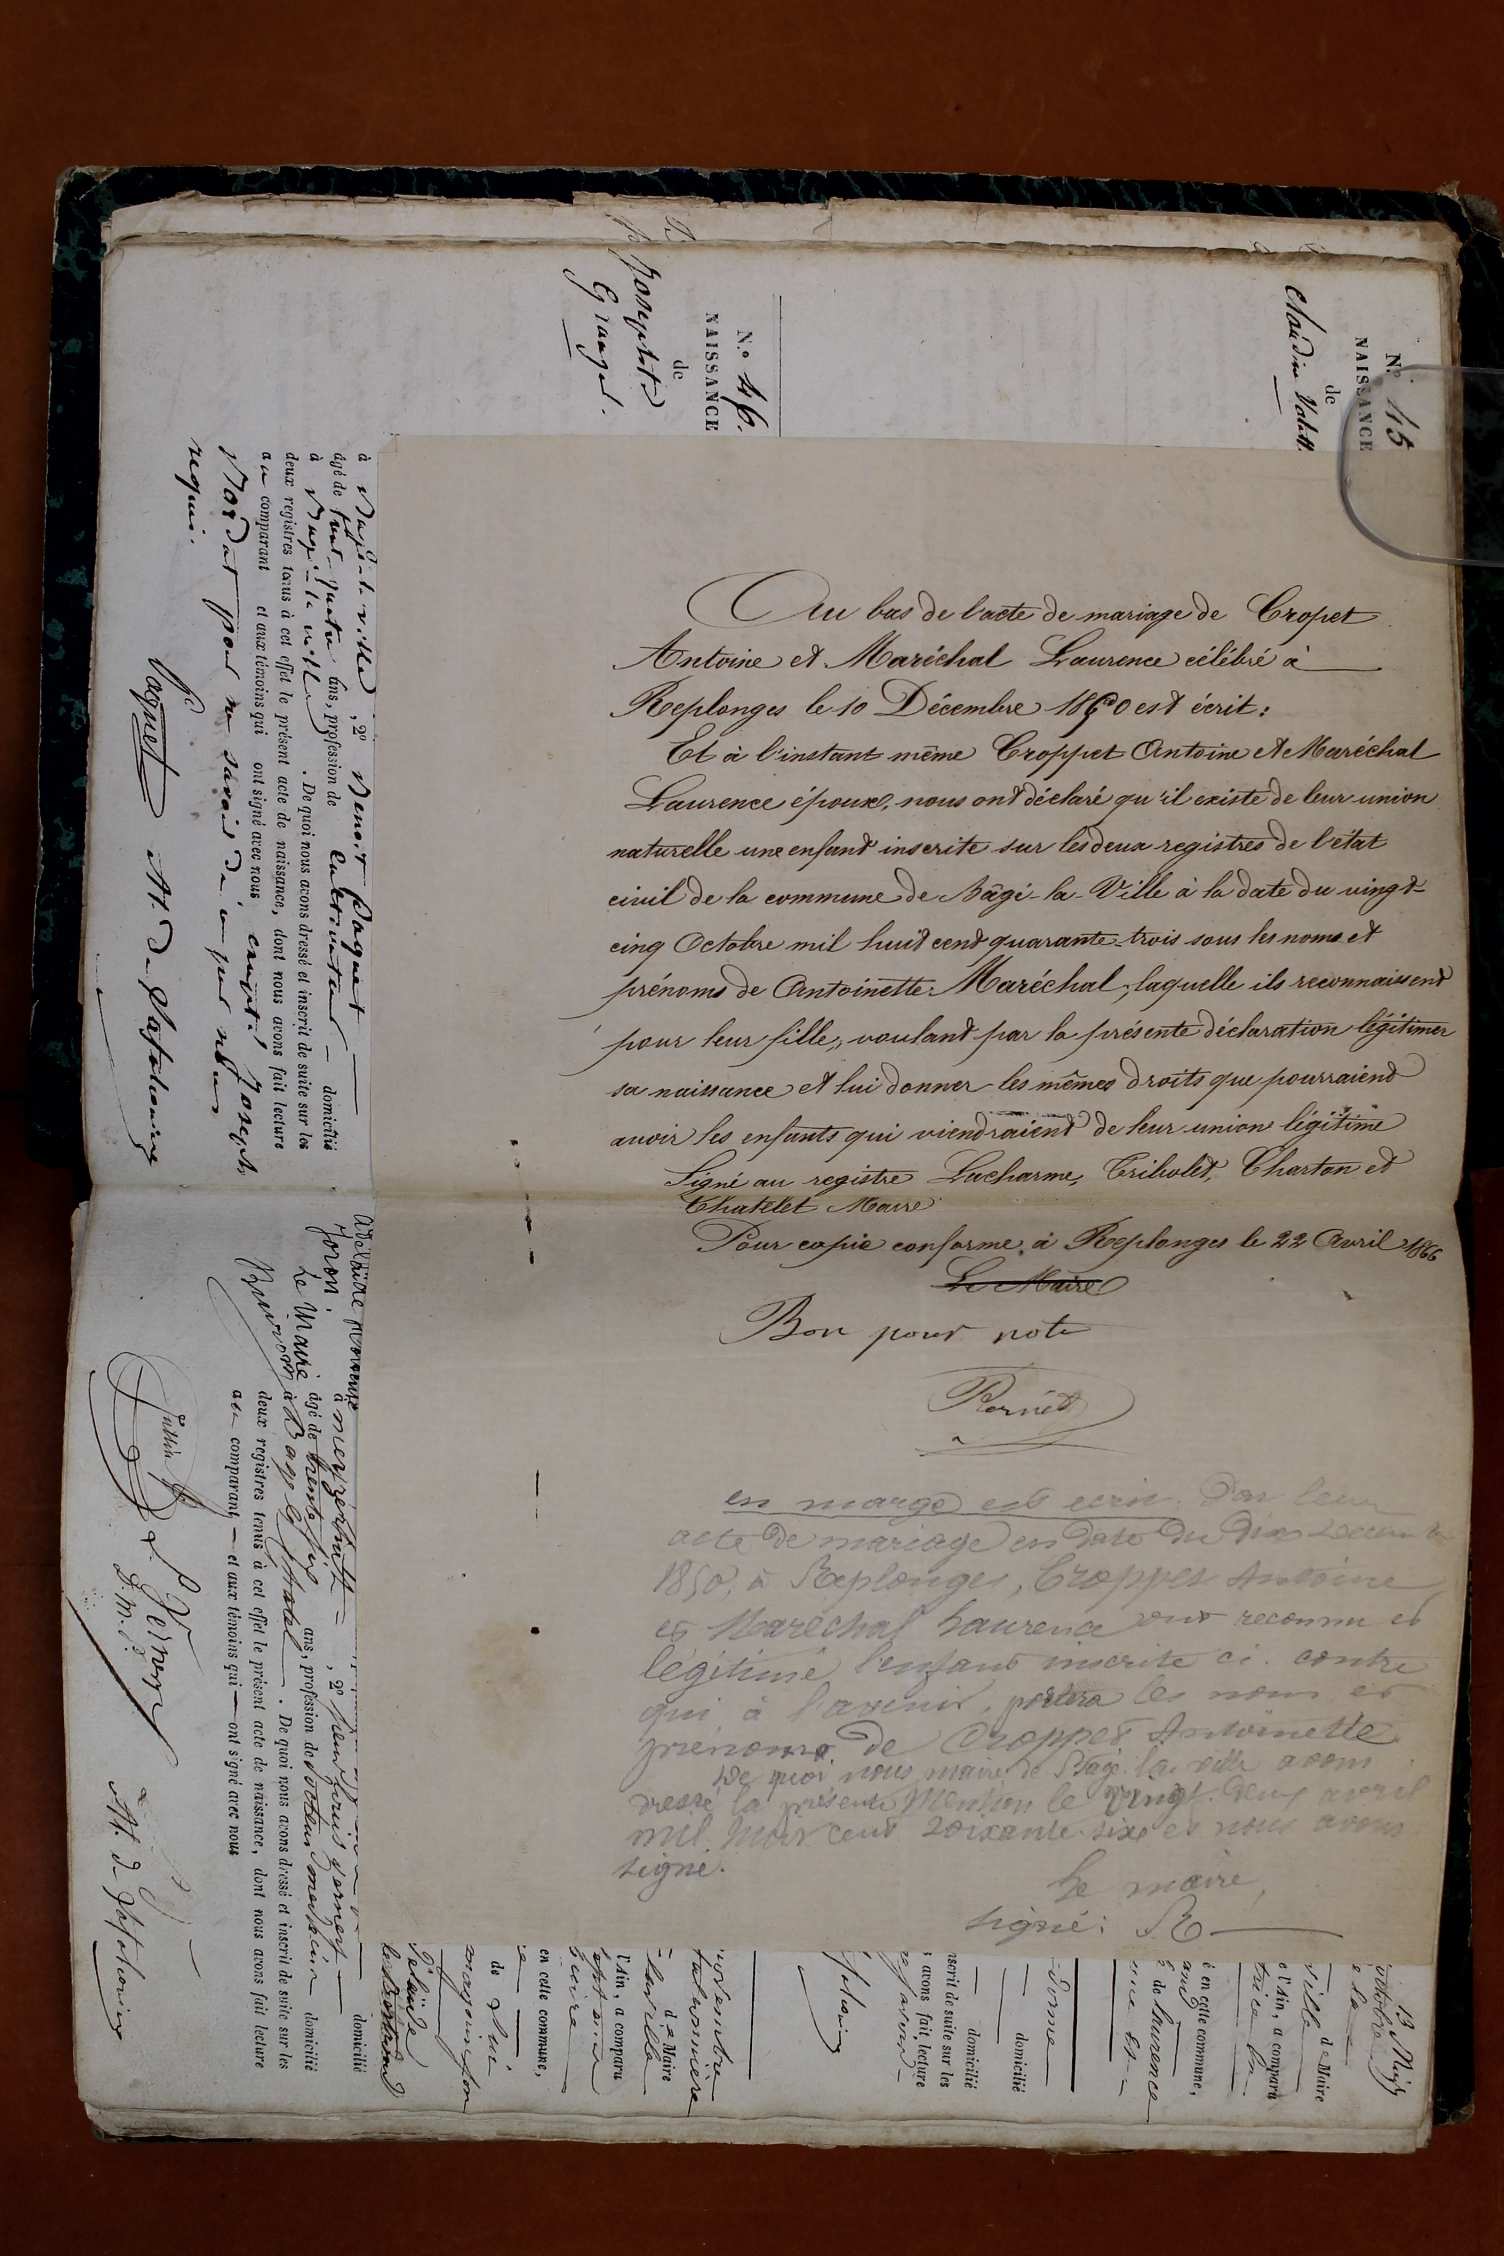 Au bas de l'acte de mariage de Cropet
Antoine et Maréchal Laurence célébré à
Replonges le 10 Décembre 1850 est écrit :
Et à l'instant même Croppet Antoine et Maréchal
Laurence époux, nous ont déclaré qu'il existe de leur union
naturelle une enfant inscrite sur les deux registres de l'état
civil de la commune de Bâgé-la-Ville à la date du vingt-
cinq Octobre mil huit cent quarante-trois sous les noms et
prénoms de Antoinette Maréchal, laquelle ils reconnaissent
pour leur fille, voulant par la présente déclaration légitimer
sa naissance et lui donner les mêmes droits que pourraient
avoir les enfants qui viendraient de leur union légitime
Signé au registre Lucharme, Tribolet, Charton et
Chatelet Maire
Pour copie conforme, à Replonges le 22 Avril 1866
Le Maire
Bon pour note
en marge est écrit. Par leur
acte de mariage en date du dix Décembre
1850, à Replonges, Croppet Antoine
et Maréchal Laurence ont reconnu et
légitimé l'enfant inscrite ci-contre
qui à l'avenir, portera les noms et
prénoms de Croppet Antoinette
De quoi nous maire de Bagé-la-ville avons
dressé la présente mention le vingt-deux avril
mil huit cent soixante-six et nous avons
signé.
Le maire,
signé : R
N.º 45
NAISSANCE
de
N.º 46.
NAISSANCE
de
Josephte
Granger.
à Bagé-la-ville, 2º Benoit Paquet
âgé de trente-quatre ans, profession de cultivateur domicilié
à Bagé-la-ville. De quoi nous avons dressé et inscrit de suite sur les
deux registres tenus à cet effet le présent acte de naissance, dont nous avons fait lecture
au comparant et aux témoins qui ont signé avec nous
requis.
Paquet
Le Maire
domicilié
âgé de trente six ans, profession de docteur medecin domicilié
à Bagé le Chatel. De quoi nous avons dressé et inscrit de suite sur les
deux registres tenus à cet effet le présent acte de naissance, dont nous avons fait lecture
au comparant et aux témoins qui ont signé avec nous
d. m. p.
de Maire
l'Ain, a comparu
en cette commune,
de
de Maire
e l'Ain, a comparu
é en cette commune,
de Laurence
domicilié
domicilié
nscrit de suite sur les
s avons fait lecture